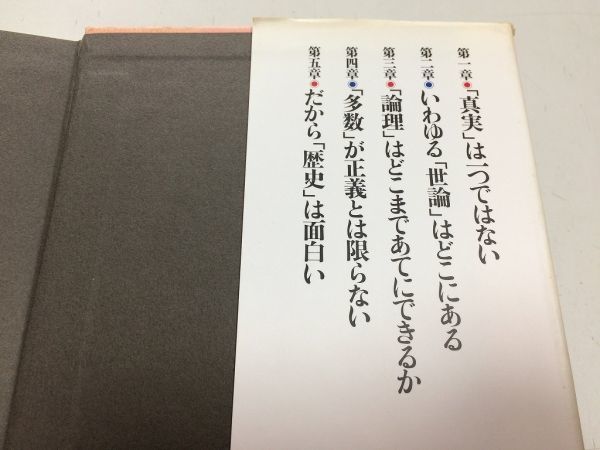 第一章●「真実」は一つではない
第二章●いわゆる「世論」はどこにある
第三章●「論理」はどこまであてにできるか
第四章●「多数」が正義とは限らない
第五章●だから「歴史」は面白い